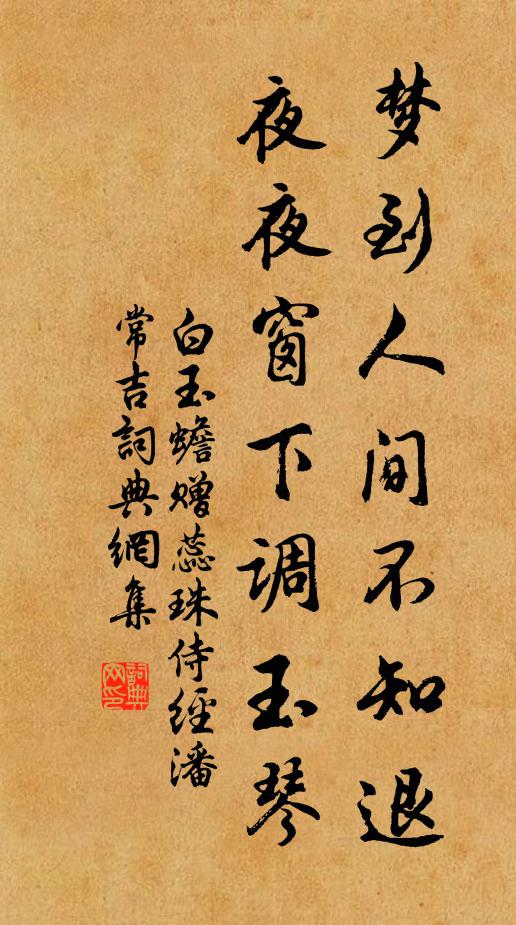 梦到人间不知退
夜夜窗下调玉琴
白玉蟾赠蕊珠侍经潘
常吉詞典網集
詞典网印